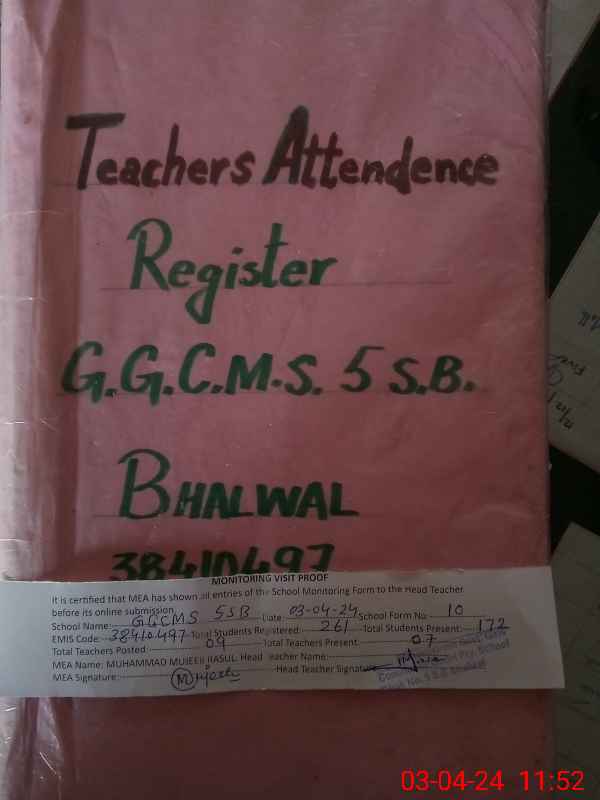 Teachers Attendence
Register
G.G.C.M.S. 5 S.B.
BHALWAL
38410497
MONITORING VISIT PROOF
It is certified that MEA has shown all entries of the School Monitoring Form to the Head Teacher
before its online submission
School Name: GGCMS 5SB Date 03-04-24 School Form No: 10
EMIS Code: 38410497 Total Students Registered: 261 Total Students Present: 172
Total Teachers Posted 09 Total Teachers Present 07
MEA Name: MUHAMMAD MUJEEB RASUL Head Teacher Name:
MEA Signature: Head Teacher Signature
School
03-04-24 11:52